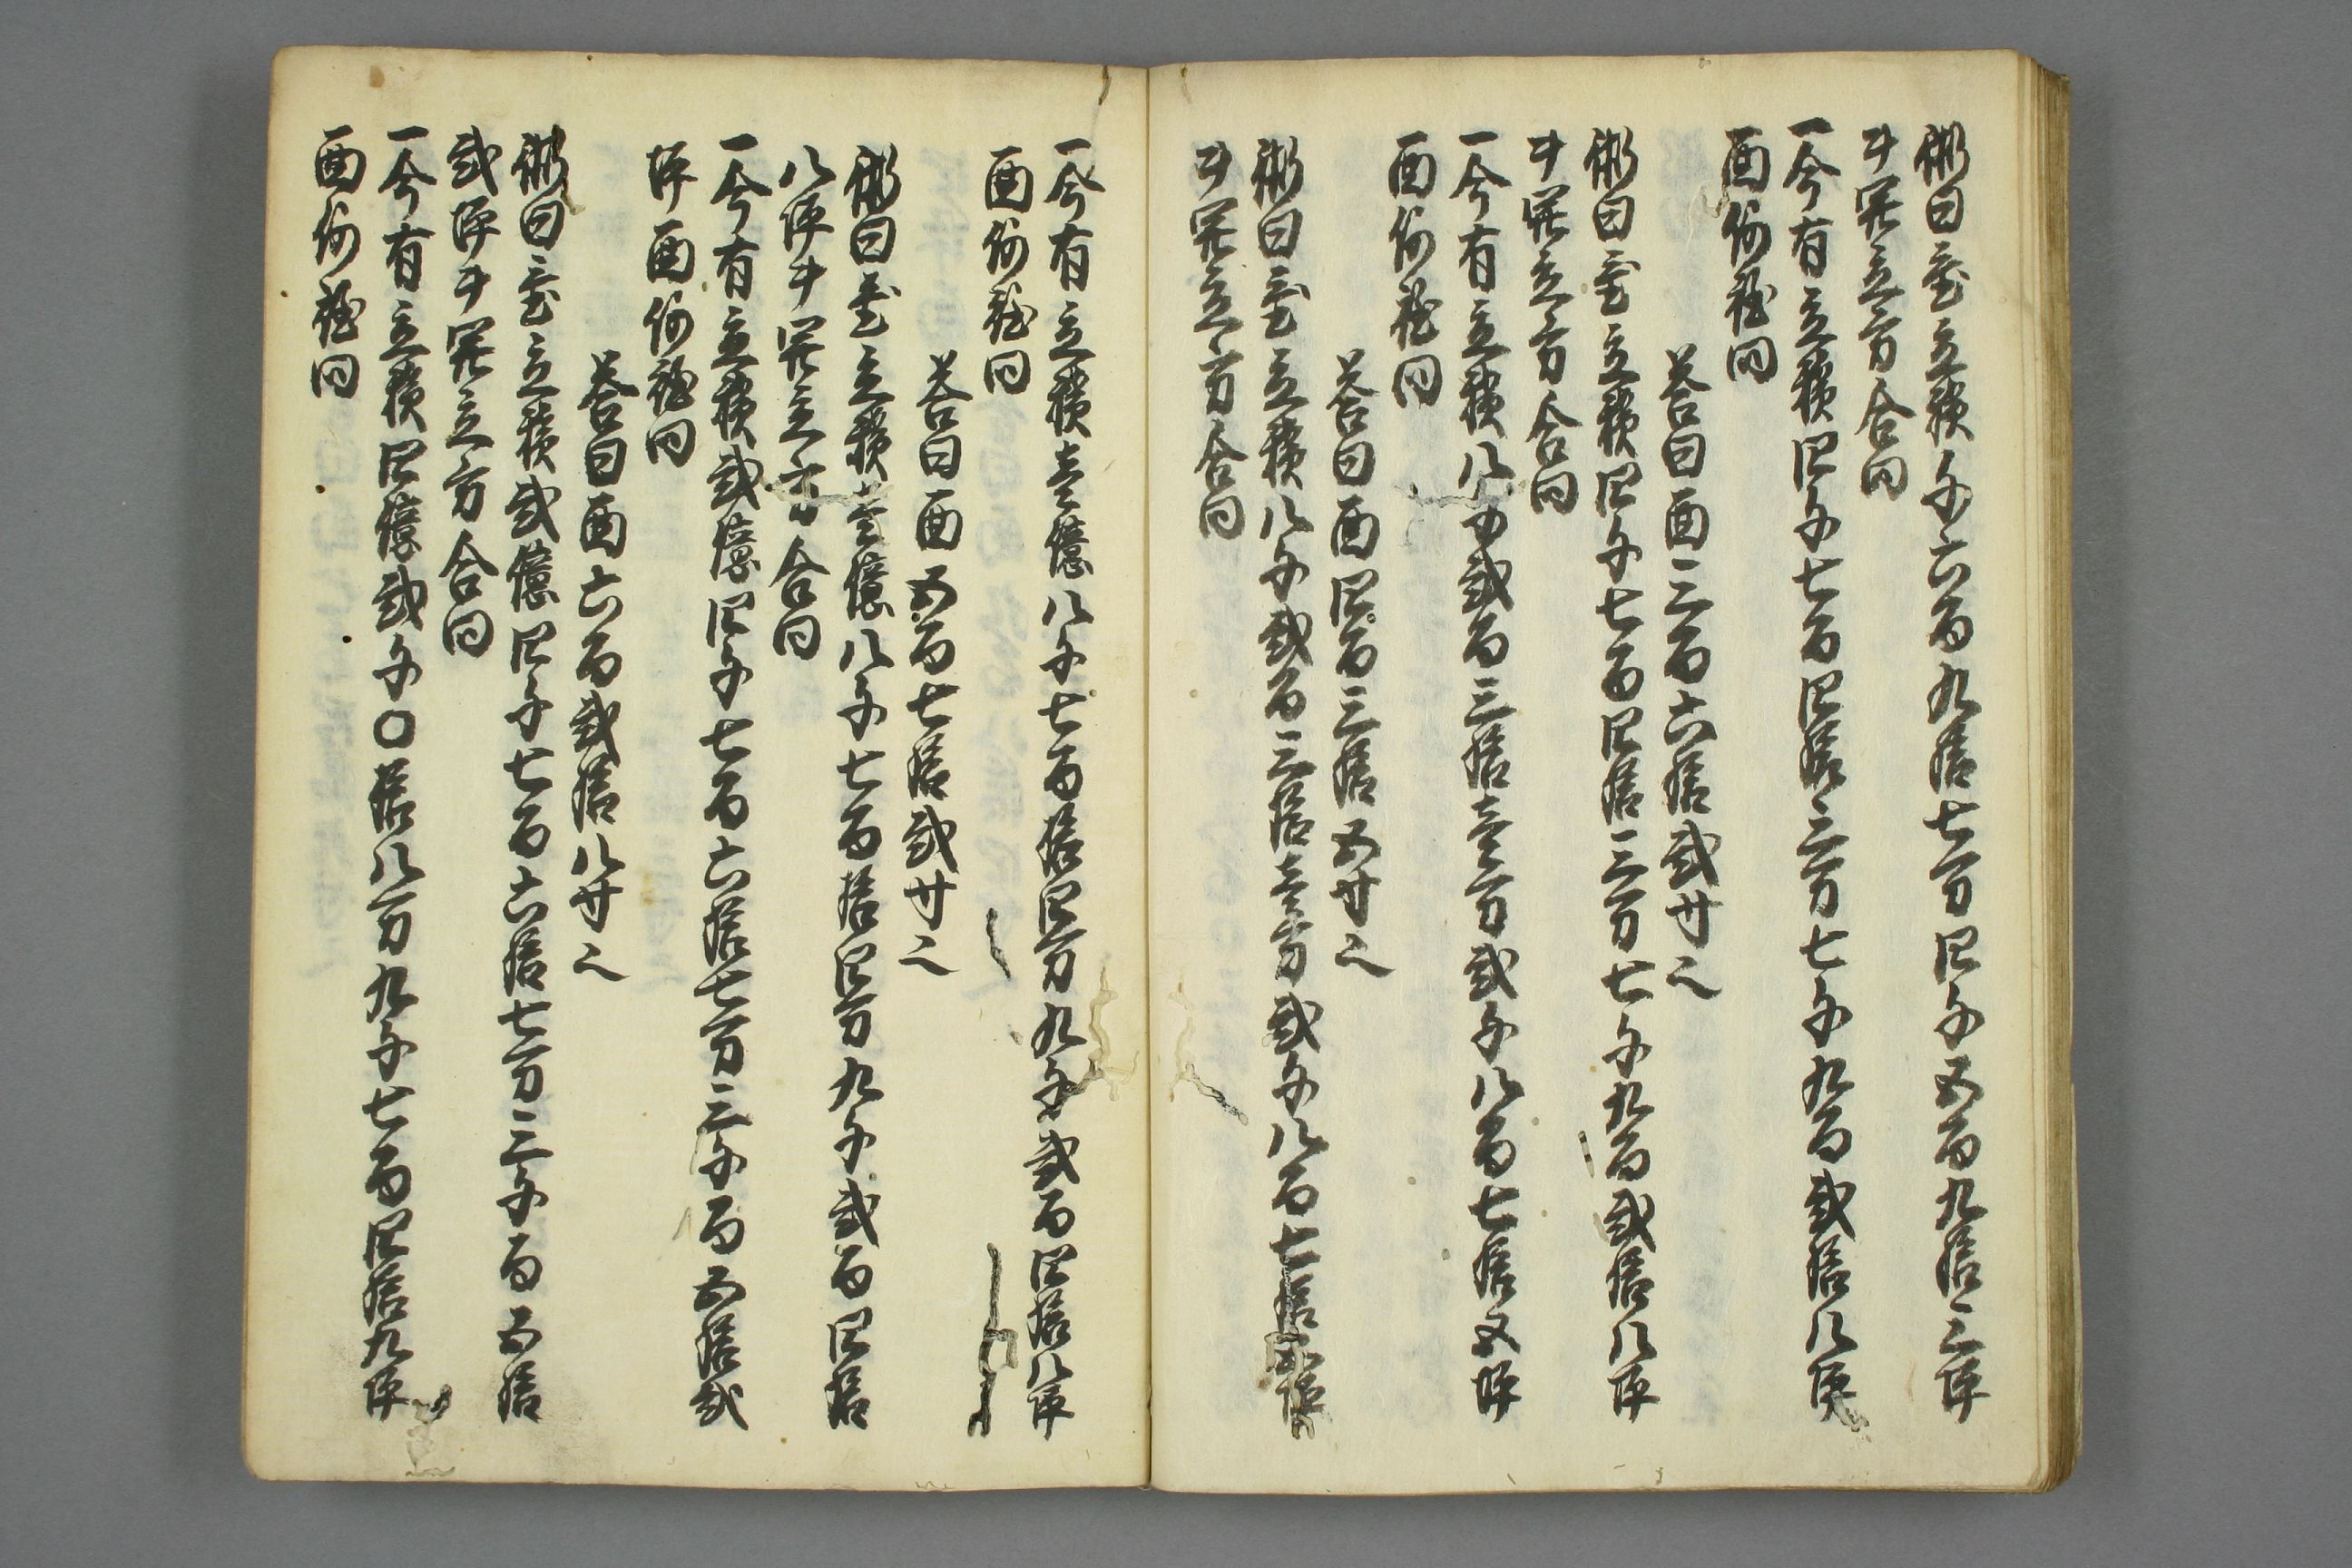 術曰置立積千六百九拾七万四千五百九拾三坪
ヲ開立方合問
一今有立積四千七百四拾三万七千九百弐拾八坪
面何程問
答曰面三百六拾弐寸也
術曰置立積四千七百四拾三万七千九百弐拾八坪
ヲ開立方合問
一今有立積八千弐百三拾壱万弐千八百七拾五坪
面何程問
答曰面四百三拾五寸也
術曰置立積八千弐百三拾壱万弐千八百七拾五坪
ヲ開立方合問
一今有立積壱億八千七百拾四万九千弐百四拾八坪
面何程問
答曰面五百七拾弐寸也
術曰置立積壱億八千七百拾四万九千弐百四拾
八坪ヲ開立方合問
一今有立積弐億四千七百六拾七万三千百五拾弐
坪面何程問
答曰面六百弐拾八寸也
術曰置立積弐億四千七百六拾七万三千百五拾
弐坪ヲ開立方合問
一今有立積四億弐千〇拾八万九千七百四拾九坪
面何程問